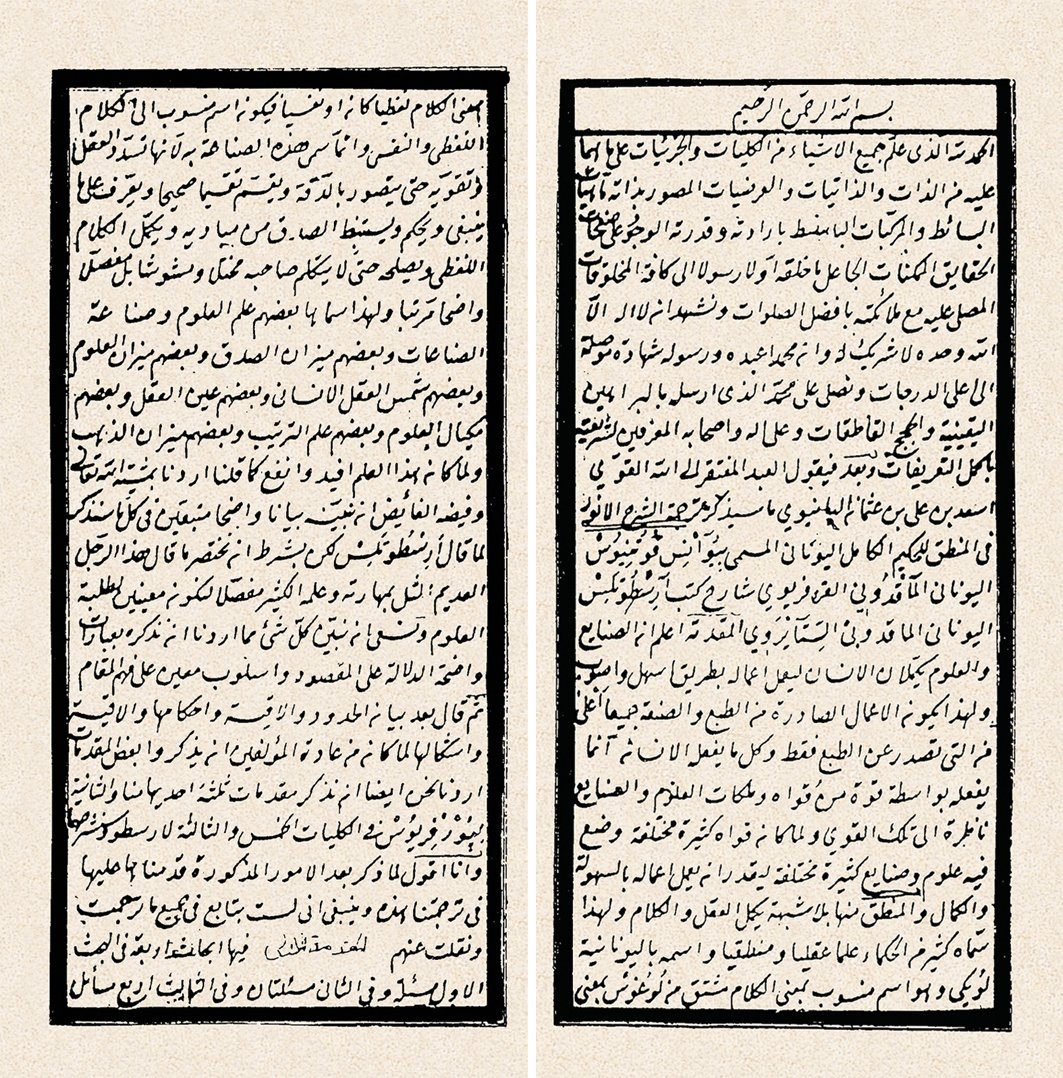 بسم الله الرحمن الرحيم
الحمد لله الذى علم جميع الاشياء من الكليات والجزئيات على ما هيأ
عليه من الذات والذاتيات والعرضيات المصور بذاته ماهيات
البسائط والمركبات الباسط بارادته وقدرته الوجود على
الحقايق الممكنات الجاعل ما خلقه اولا رسولا الى كافة المخلوقات
المصلى عليه مع ملائكته بافضل الصلوات ونشهد انه لا اله الا
الله وحده لا شريك له وانه محمدا عبده ورسوله شهادة موصلة
الى اعلى الدرجات ونصلى على محمد الذى ارسله بالبراهين
اليقينية والحجج القاطعات وعلى اله واصحابه المعرفين لشريعته
باكمل التعريفات وبعد فيقول العبد المفتقر الى الله القوي
اسعد بن على بن عثمان اليانيوي ما سيذكر ترجمة الشرح الانور
فى المنطق للحكيم الكامل اليونانى المسمى بيوآنيس قوتينوس
اليونانى الماقدونى القره فريوي شارح كتب آرسطوتلس
اليونانى الماقدونى الستايروي المقدمة اعلم انه الصنايع
والعلوم يكملان الانسان ليفعل اعماله بطريق اسهل واصوب
ولهذا يكونه الاعمال الصادرة من الطبع والصنعة جميعا اعلى
من التى تصدر عن الطبع فقط وكل ما يفعله الانسان انما
يفعله بواسطة قوة من قواه وملكات العلوم والصنايع
ناظرة الى تلك القوي ولما كانه قواه كثيرة مختلفة وضع
فيه علوم وصنايع كثيرة مختلفة ليقدر ان يعمل اعماله بالسهولة
والكمال والمنطق منها بلا شبهة يكمل العقل والكلام ولهذا
سماه كثير من الحكماء علما عقليا ومنطقيا واسمه باليونانية
لوغيكى وهو اسم منسوب بمعنى الكلام مشتق من لوغوس بمعنى
بمعنى الكلام لفظيا كانه او نفسيا فيكونه اسم منسوب الى الكلام
اللفظى والنفسى وانما سمى هذه الصناعة به لانها تسدد العقل
وتقويه حتى يتصور بالدقة ويقسم تقسيما صحيحا ويعرف على ما
ينبغى ويحكم ويستنبط الصادق من مباديه ويكمل الكلام
اللفظى ويصلحه حتى لا يتكلم صاحبه مختلا ومشوشا بل مفصلا
واضحا مرتبا ولهذا سماها بعضهم علم العلوم وصناعة
الصناعات وبعضهم ميزان الصدق وبعضهم ميزان العلوم
وبعضهم شمس العقل الانسانى وبعضهم عين العقل وبعضهم
مكيال العلوم وبعضهم علم الترتيب وبعضهم ميزان الذهب
ولما كانه هذا العلم افيد وانفع كما قلنا اردنا بمشيئة الله تعالى
وفيضه الفائض ان نبينه بيانا واضحا متبعين فى كل ما سنذكر
لما قال أرسطوتلس لكن بشرط ان نختصر ما قال هذا الرجل
العديم المثل بمهارته وعلمه الكثير مفصلا لنكونه معينين لطلبة
العلوم ونسعى انه نبين كل شئ مما اردنا انه نذكره بعبارات
واضحة الدلالة على المقصود واسلوب معين على فهم المقام
ثم قال بعد بيانه الحدود والاقيسة واحكامها والاقيسة
واشكالها لما كانه من عادة المؤلفين انه يذكروا بعض المقدمات
اردنا نحن ايضا انه نذكر مقدمات ثلثة احديها منا والثانية
ليورفريوس فى الكليات الخمس والثالثة لارسطو وشرحها
وانا اقول لما ذكر بعد الامور المذكورة قدمنا
فى ترجمتنا هذه وينبغى انى لست بتابع فى جميع ما ترجمت
ونقلت عنهم المقدمة الاولى فيها ابحاث اربعة فى البحث
الاول مسئلة وفى الثانى مسئلتان وفى الثالث اربع مسائل